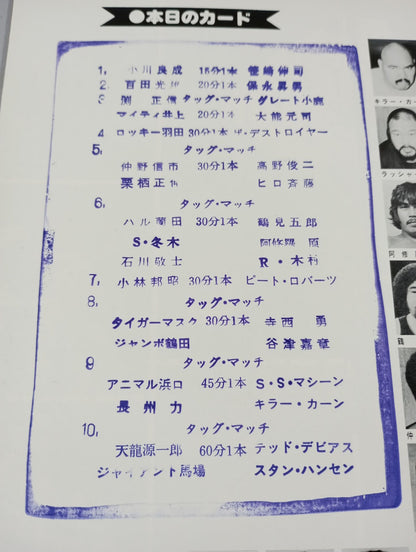 ●本日のカード
1, 小川良成 15分1本 笹崎伸司
2, 百田光雄 20分1本 保永昇男
3 渕 正信 タッグ・マッチ グレート小鹿
マイティ井上 20分1本 大熊元司
4, ロッキー羽田 30分1本 ザ・デストロイヤー
5, タッグ・マッチ
仲野信市 30分1本 高野俊二
栗栖正伸 ヒロ斉藤
6, タッグ・マッチ
ハル薗田 30分1本 鶴見五郎
S・冬木 阿修羅 原
石川敬士 R・木村
7, 小林邦昭 30分1本 ビート・ロバーツ
8, タッグ・マッチ
タイガーマスク 30分1本 寺西 勇
ジャンボ鶴田 谷津嘉章
9 タッグ・マッチ
アニマル浜口 45分1本 S・S・マシーン
長州 力 キラー・カーン
10, タッグ・マッチ
天龍源一郎 60分1本 テッド・デビアス
ジャイアント馬場 スタン・ハンセン
キラー・カー
ラッシャー
阿修
鶴
仲